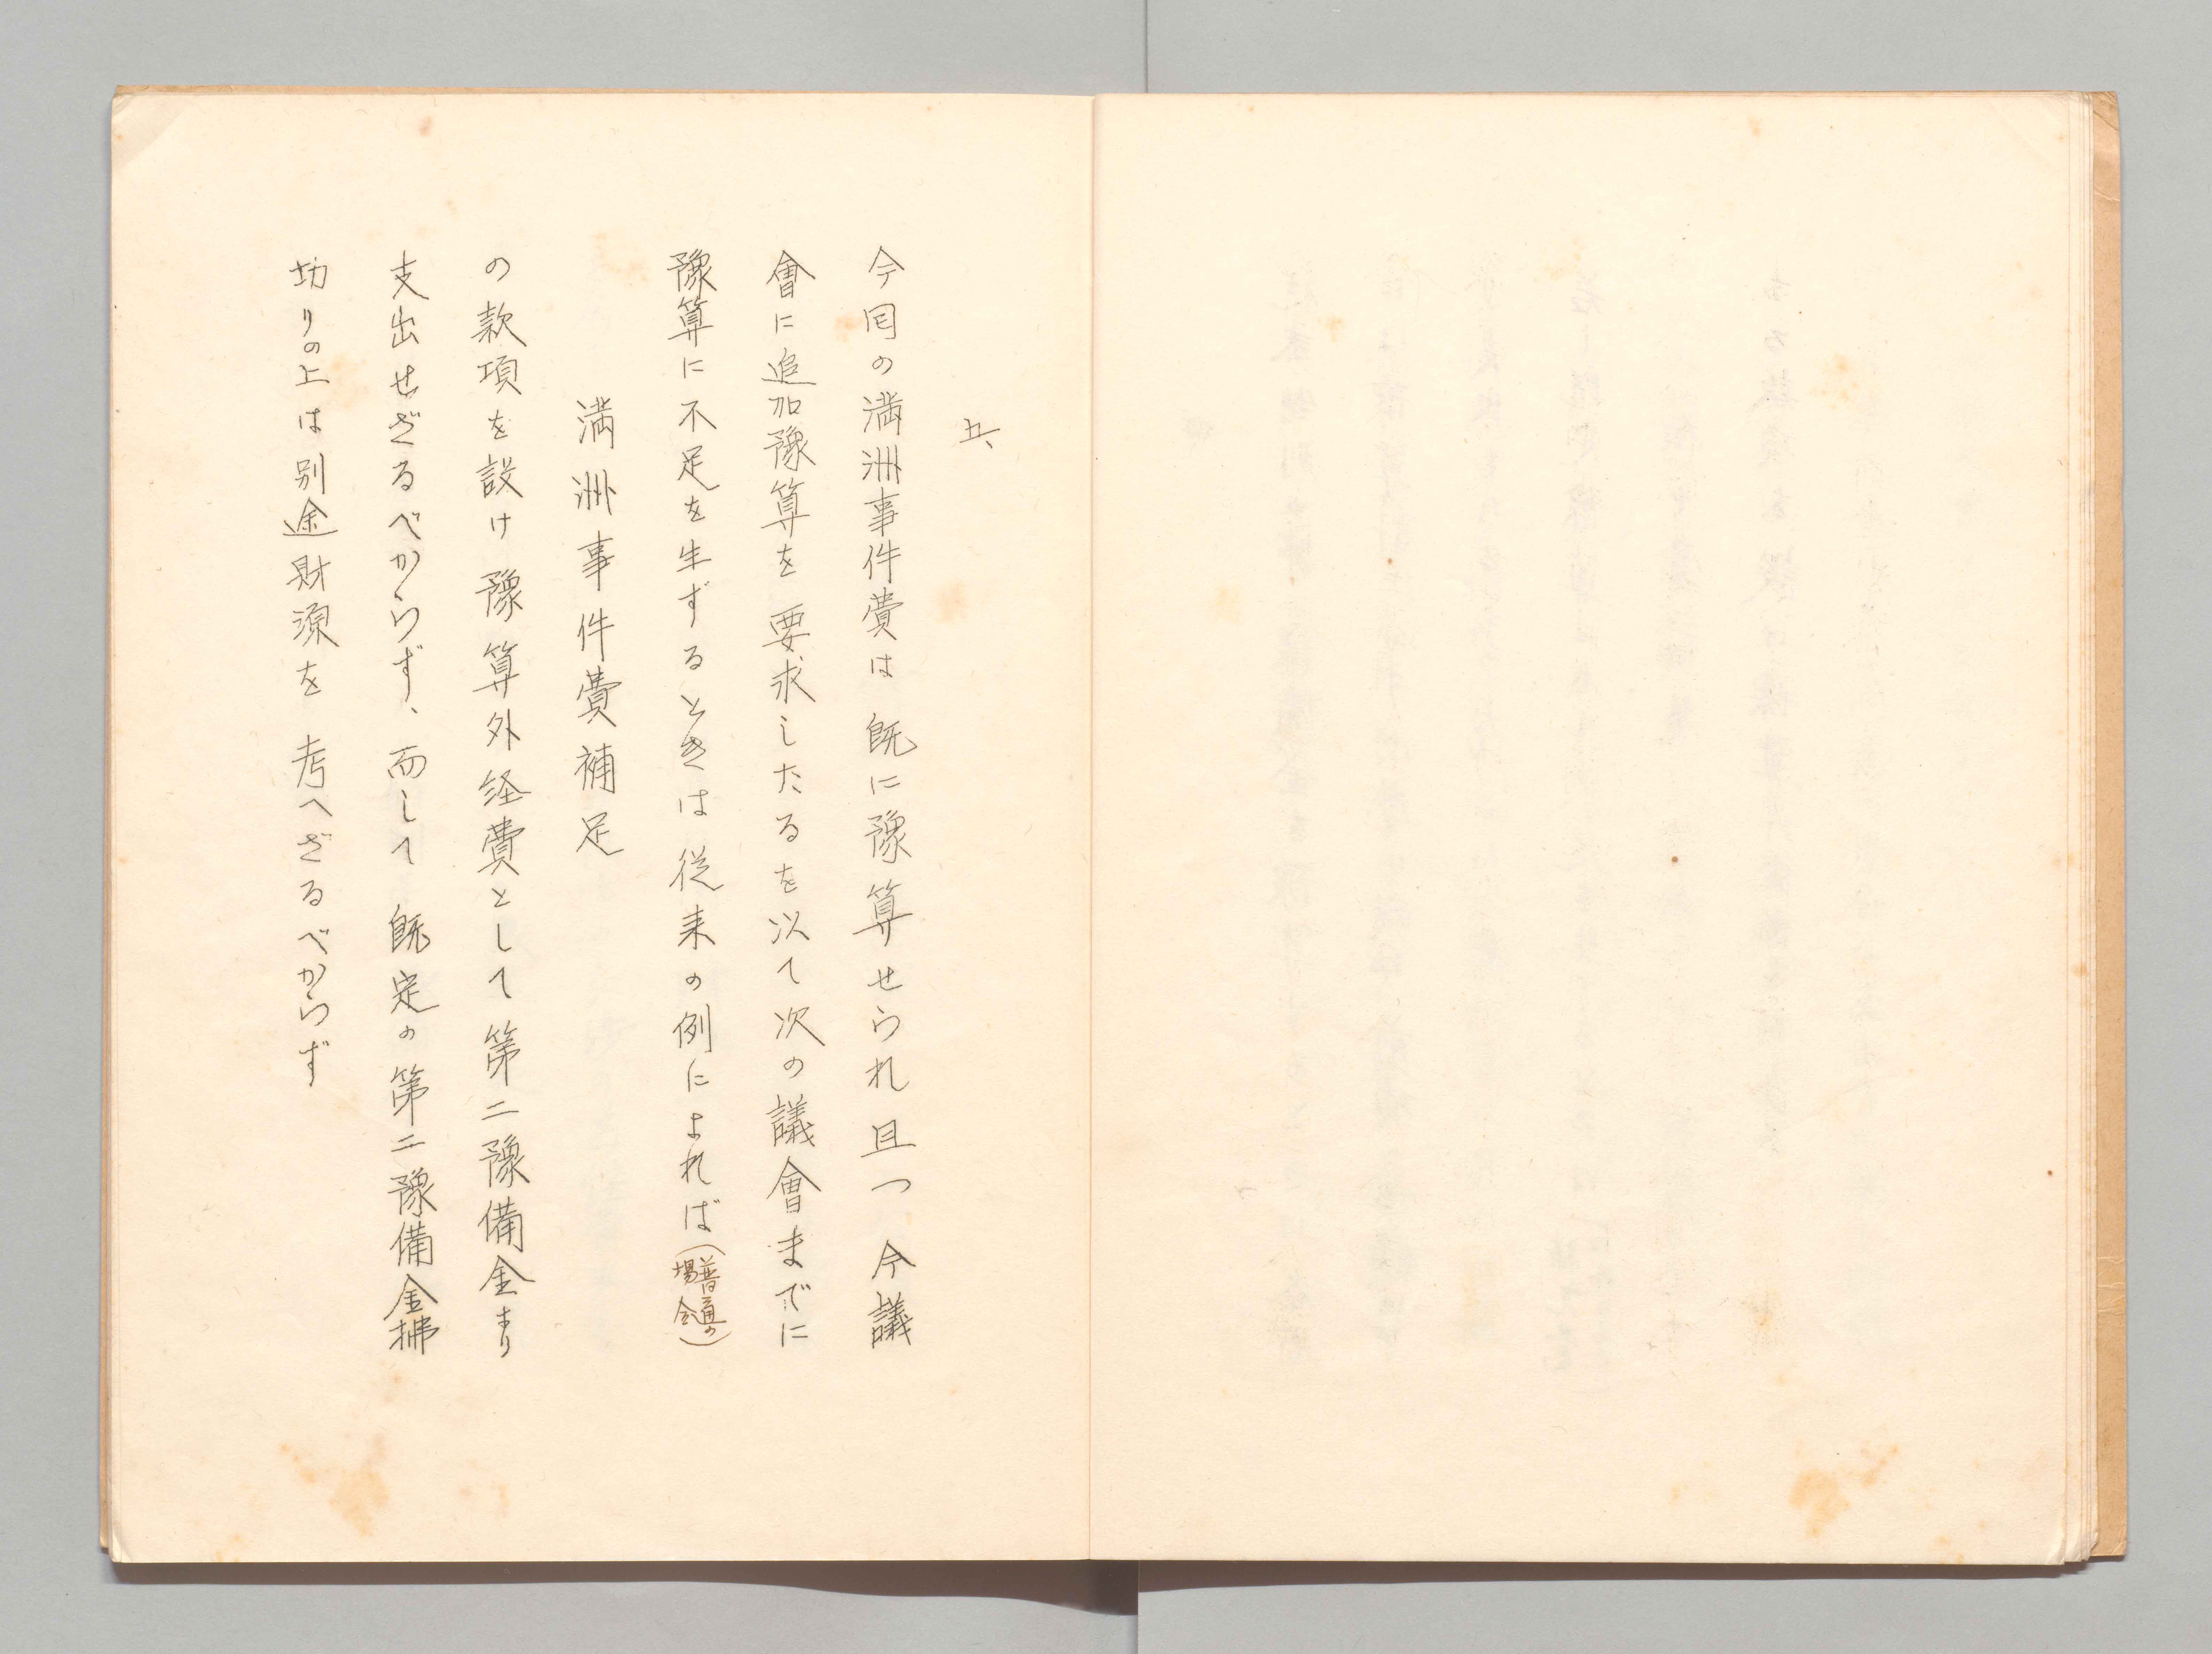 五、
今回の満洲事件費は既に豫算せられ且つ今議
會に追加豫算を要求したるを以て次の議會までに
豫算に不足を生ずるときは従来の例によれば(普通の場合)
満洲事件費補足
の款項を設け豫算外経費として第二豫備金より
支出せざるべからず、而して既定の第二豫備金拂
切りの上は別途財源を考へざるべからず